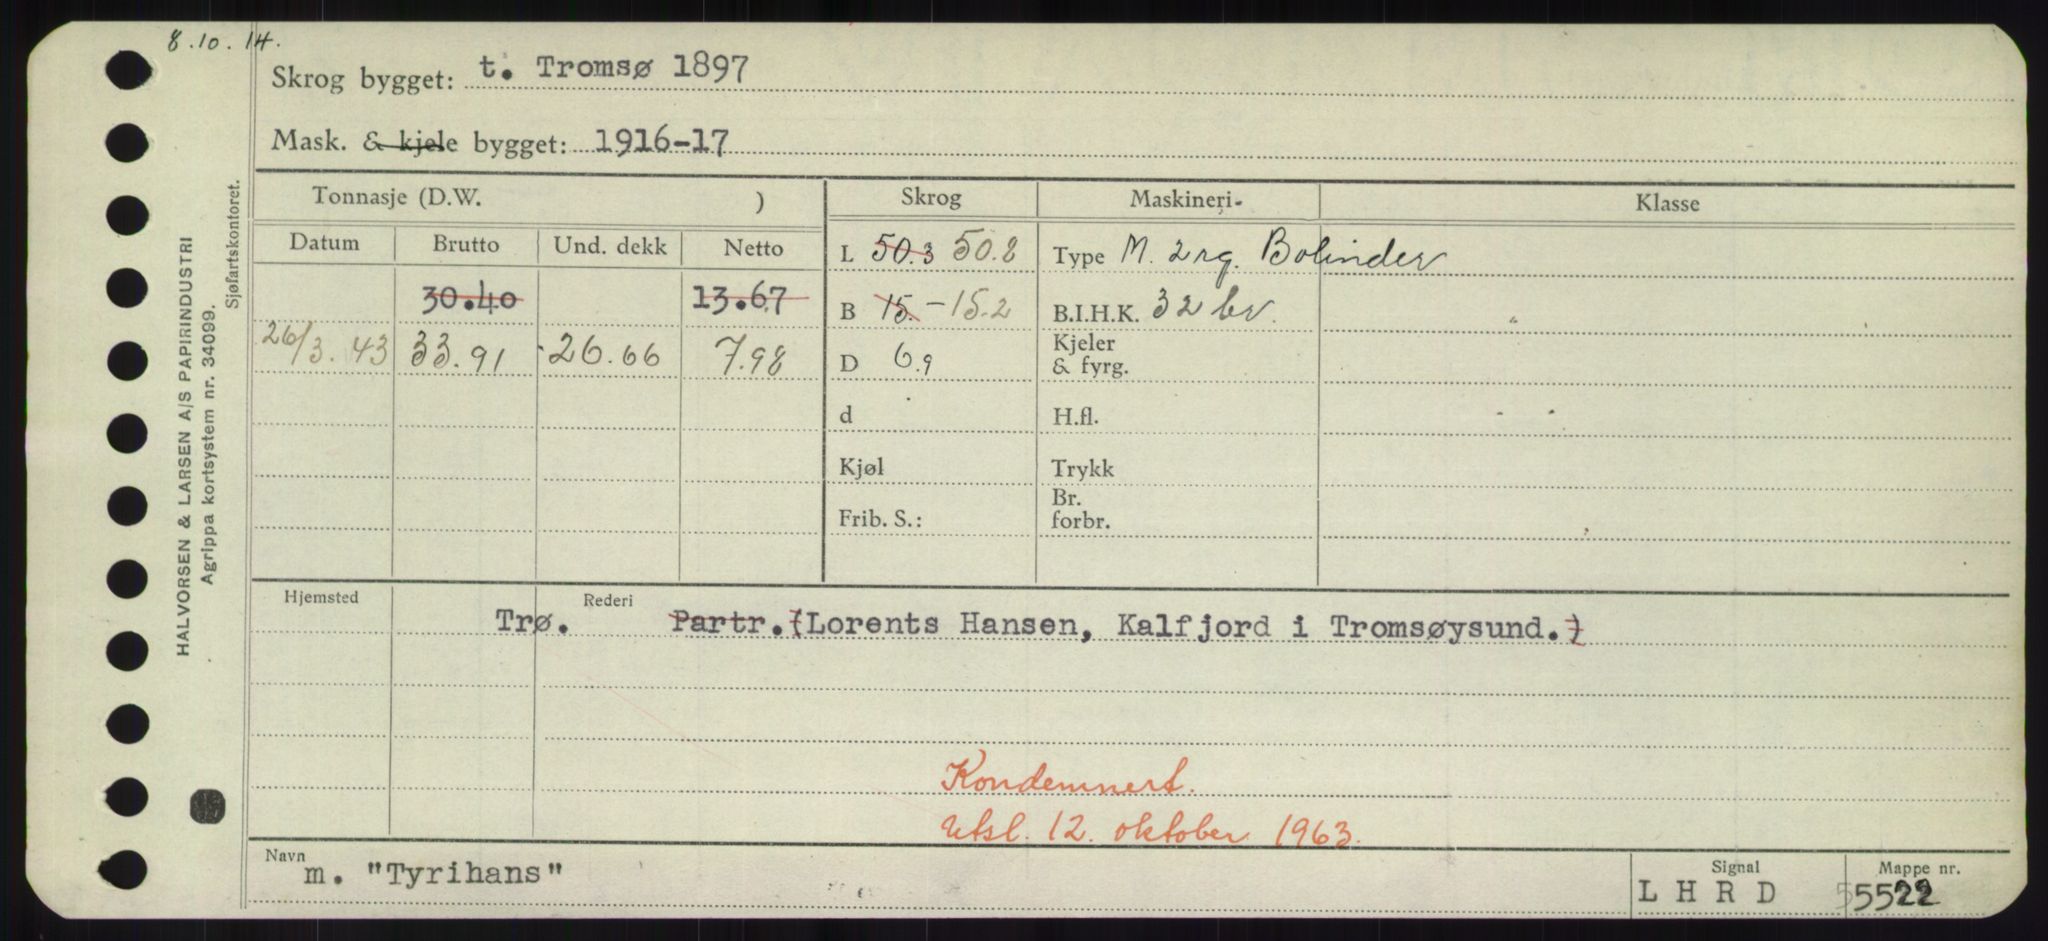 8.10.14.
Skrog bygget: t. Tromsø 1897
Mask. & kjele bygget: 1916-17
Tonnasje (D.W. ) Skrog Maskineri- Klasse
Datum Brutto Und. dekk Netto
L 50.3 50.8 Type M. 2 rg. Bolinder
30.40 13.67
B 15.- 15.2 B.I.H.K. 32 br.
26/3.43 33.91 26.66 7.98
D 6.9 Kjeler
& fyrg.
d H.fl.
Kjøl Trykk
Frib. S.: Br.
forbr.
Hjemsted Rederi
Trø. Partr. (Lorents Hansen, Kalfjord i Tromsøysund.)
Kondemnert.
Utsl. 12. oktober 1963.
Navn Signal Mappe nr.
m. "Tyrihans" LHRD 5522
HALVORSEN & LARSEN A/S PAPIRINDUSTRI
Agrippa kortsystem nr. 34099.
Sjøfartskontoret.